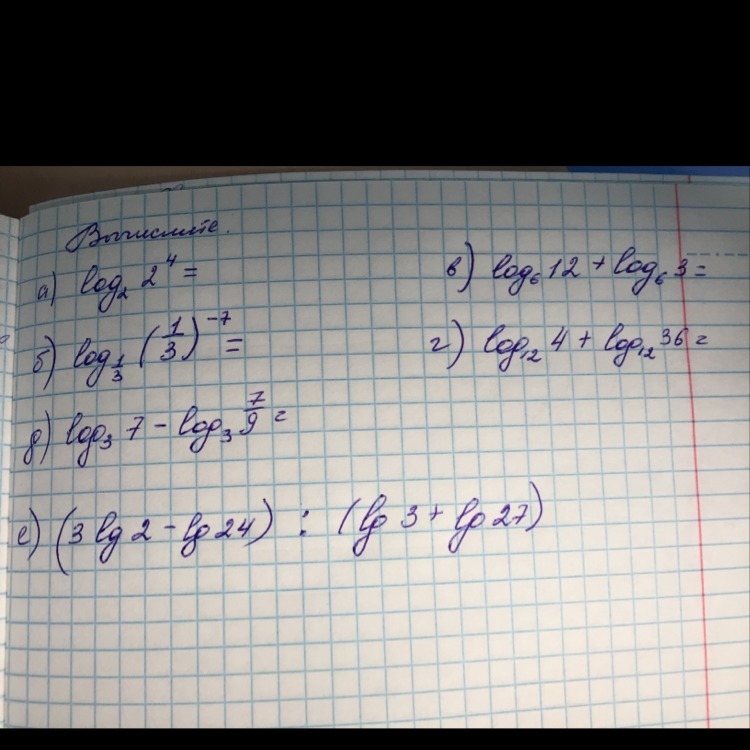 Вычислите.
а) log₂ 2⁴ =
б) log_{1/3} (1/3)⁻⁷ =
д) log₃ 7 - log₃ 7/9 =
в) log₆ 12 + log₆ 3 =
г) log₁₂ 4 + log₁₂ 36 =
е) (3 lg 2 - lg 24) : (lg 3 + lg 27)